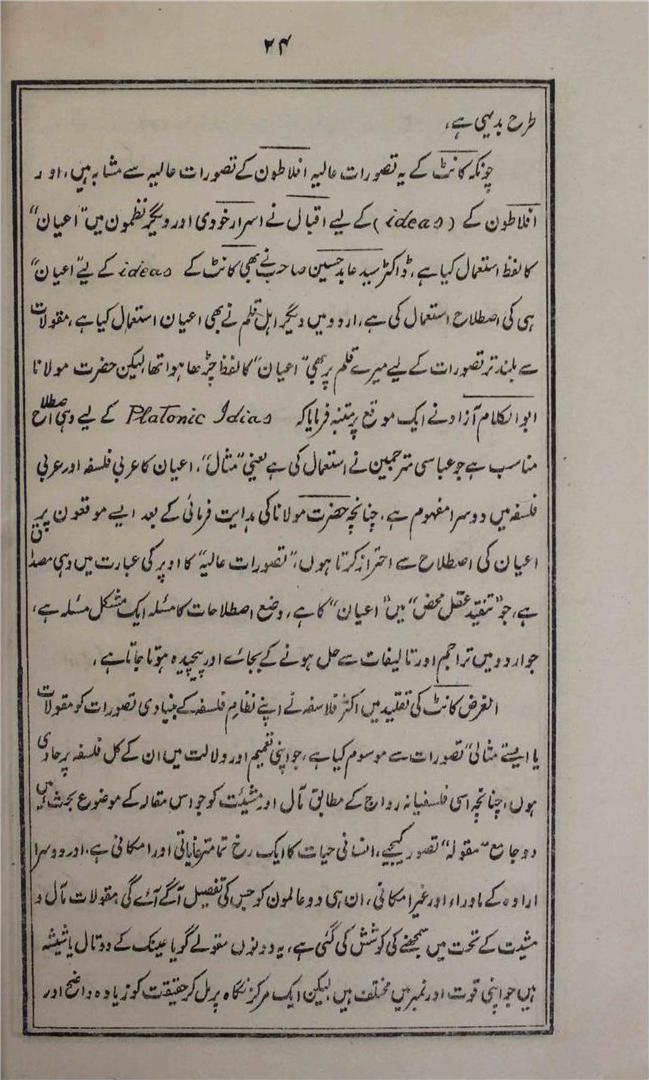 ۲۴
طرح بدیہی ہے،
چونکہ کانٹ کے یہ تصورات عالیہ افلاطون کے تصورات عالیہ سے مشابہ ہیں، اور
افلاطون کے (ideas) کے لیے اقبال نے اسرار خودی اور دیگر نظموں میں "اعیان"
کا لفظ استعمال کیا ہے، ڈاکٹر سید عابد حسین صاحب نے بھی کانٹ کے ideas کے لیے "اعیان"
ہی کی اصطلاح استعمال کی ہے، اردو میں دیگر اہل قلم نے بھی اعیان استعمال کیا ہے، مقولات
سے بلند تر تصورات کے لیے میرے قلم پر بھی "اعیان" کا لفظ چڑھا ہوا تھا لیکن حضرت مولانا
ابوالکلام آزاد نے ایک موقع پر متنبہ فرمایا کہ Platonic Idias کے لیے وہی اصطلاح
مناسب ہے جو عباسی مترجمین نے استعمال کی ہے یعنی "مثال"، اعیان کا عربی فلسفہ اور عربی
فلسفہ میں دوسرا مفہوم ہے، چنانچہ حضرت مولانا کی ہدایت فرمائی کے بعد ایسے موقعون پر میں
اعیان کی اصطلاح سے احتراز کرتا ہوں، "تصورات عالیہ" کا اوپر کی عبارت میں وہی مصداق
ہے، جو "تنقید عقل محض" میں "اعیان" کا ہے، وضع اصطلاحات کا مسئلہ ایک مشکل مسئلہ ہے،
جو اردو میں تراجم اور تالیفات سے حل ہونے کے بجائے اور پیچیدہ ہوتا جاتا ہے،
الغرض کانٹ کی تقلید میں اکثر فلاسفہ نے اپنے نظام فلسفہ کے بنیادی تصورات کو مقولات
یا ایسے مثالی تصورات سے موسوم کیا ہے، جو اپنی تعمیم اور ولالت میں ان کے کل فلسفہ پر حاوی
ہوں، چنانچہ اسی فلسفیانہ رواج کے مطابق مآل اور مشیئت کو جو اس مقالہ کے موضوع بحث ہیں
دو جامع "مقولہ" تصور کیجیے، انسانی حیات کا ایک رخ تمامتر غایاتی اور امکانی ہے، اور دوسرا
ارادہ کے ماوراء اور غیر امکانی، ان ہی دو عالموں کو جس کی تفصیل آگے آئے گی مقولات مآل و
مشیت کے تحت میں سمجھنے کی کوشش کی گئی ہے، یہ دونوں مقولے گویا عینک کے دو تال یا شیشہ
ہیں جو اپنی قوت اور نمبر میں مختلف ہیں لیکن ایک مرکز نگاہ پر مل کر حقیقت کو زیادہ واضح اور